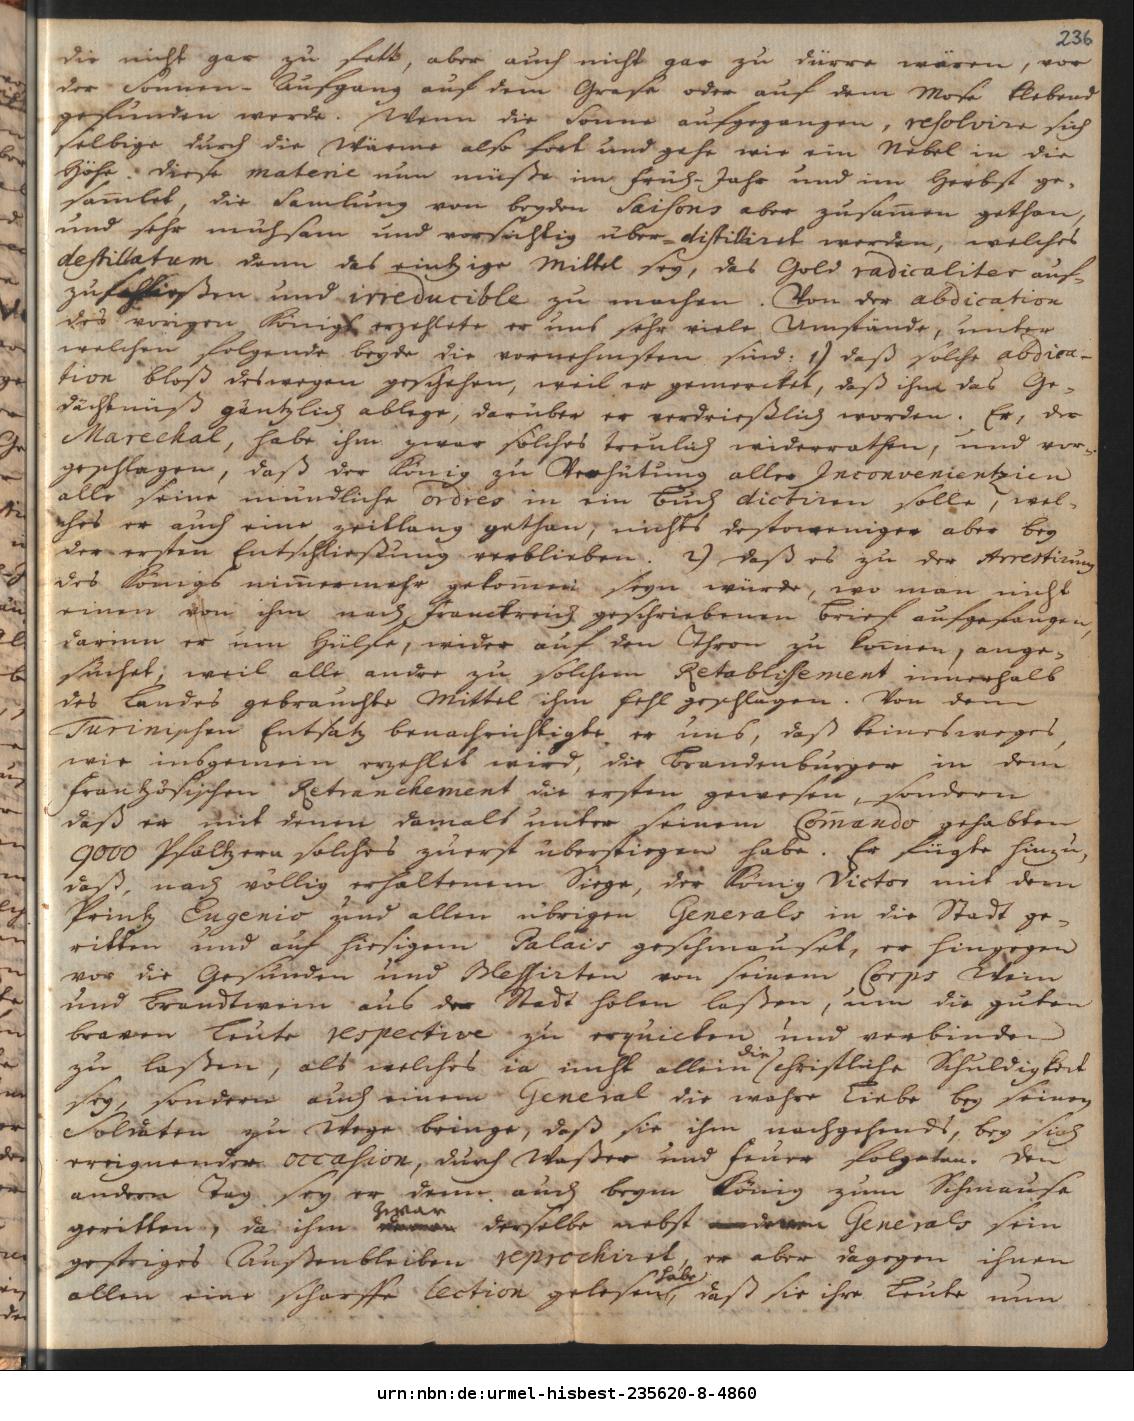 236
die nicht gar zu fett, aber auch nicht gar zu dürre wären, vor
der Sonnen-Aufgang auf dem Grase oder auf dem Mose klebend
gefunden werde. Wenn die Sonne aufgegangen, resolvire sich
selbige durch die Wärme also fort und gehe wie ein Nebel in die
Höhe. Diese materie nun müße im Früh-Jahr und im Herbst ge-
samlet, die Samlung von beyden Saisons aber zusamen gethan,
und sehr mühsam und vorsichtig über-distilliret werden, welches
destillatum denn das eintzige Mittel sey, das Gold radicaliter auf-
zuschließen und irreducible zu machen. Von der abdication
des vorigen Königs erzehlete er uns sehr viele Umstände, unter
welchen folgende beyde die vornehmsten sind: 1) daß solche abdica-
tion bloß deswegen geschehen, weil er gemercket, daß ihm das Ge-
dächtnüß gäntzlich ablege, darüber er verdrießlich worden. Er, der
Marechal, habe ihm zwar solches treulich widerrathen, und vor-
geschlagen, daß der König zu Verhütung aller Inconvenientzien
alle seine mündliche ordres in ein Buch dictiren solle, wel-
ches er auch eine zeitlang gethan, nichts destoweniger aber bey
der ersten Entschließung verblieben. 2) daß es zu der Arrestirung
des Königs nimermehr gekomen seyn würde, wo man nicht
einen von ihm nach Franckreich geschriebenen Brief aufgefangen,
darinn er um Hülfe, wider auf den Thron zu komen, ange-
suchet, weil alle andre zu solchem Retablissement innerhalb
des Landes gebrauchte Mittel ihm fehl geschlagen. Von dem
Turinischen Entsatz benachrichtigte er uns, daß keinesweges,
wie insgemein erzehlet wird, die Brandenburger in dem
Frantzösischen Retranchement die ersten gewesen, sondern
daß er mit denen damals unter seinem Comando gehabten
9000 Pfältzern solches zuerst überstiegen habe. Er fügte hinzu,
daß, nach völlig erhaltenem Siege, der König Victor mit dem
Printz Eugenio und allen übrigen Generals in die Stadt ge-
ritten und auf hiesigem Palais geschmauset, er hingegen
vor die Gesunden und Blessirten von seinem Corps Wein
und Brandtwein aus der Stadt holen laßen, um die guten
braven Leute respective zu erquicken und verbinden
zu laßen, als welches ia nicht allein die christliche Schuldigkeit
sey, sondern auch einem General die wahre Liebe bey seinen
Soldaten zu Wege bringe, daß sie ihm nachgehends, bey sich
ereignender occasion, durch Waßer und Feuer folgeten. Den
andern Tag sey er denn auch beym König zum Schmause
geritten, da ihm zwar derselbe nebst denen Generals sein
gestriges Außenbleiben reprochiret, er aber dagegen ihnen
allen eine scharffe lection gelesen habe, daß sie ihre Leute nun
urn:nbn:de:urmel-hisbest-235620-8-4860